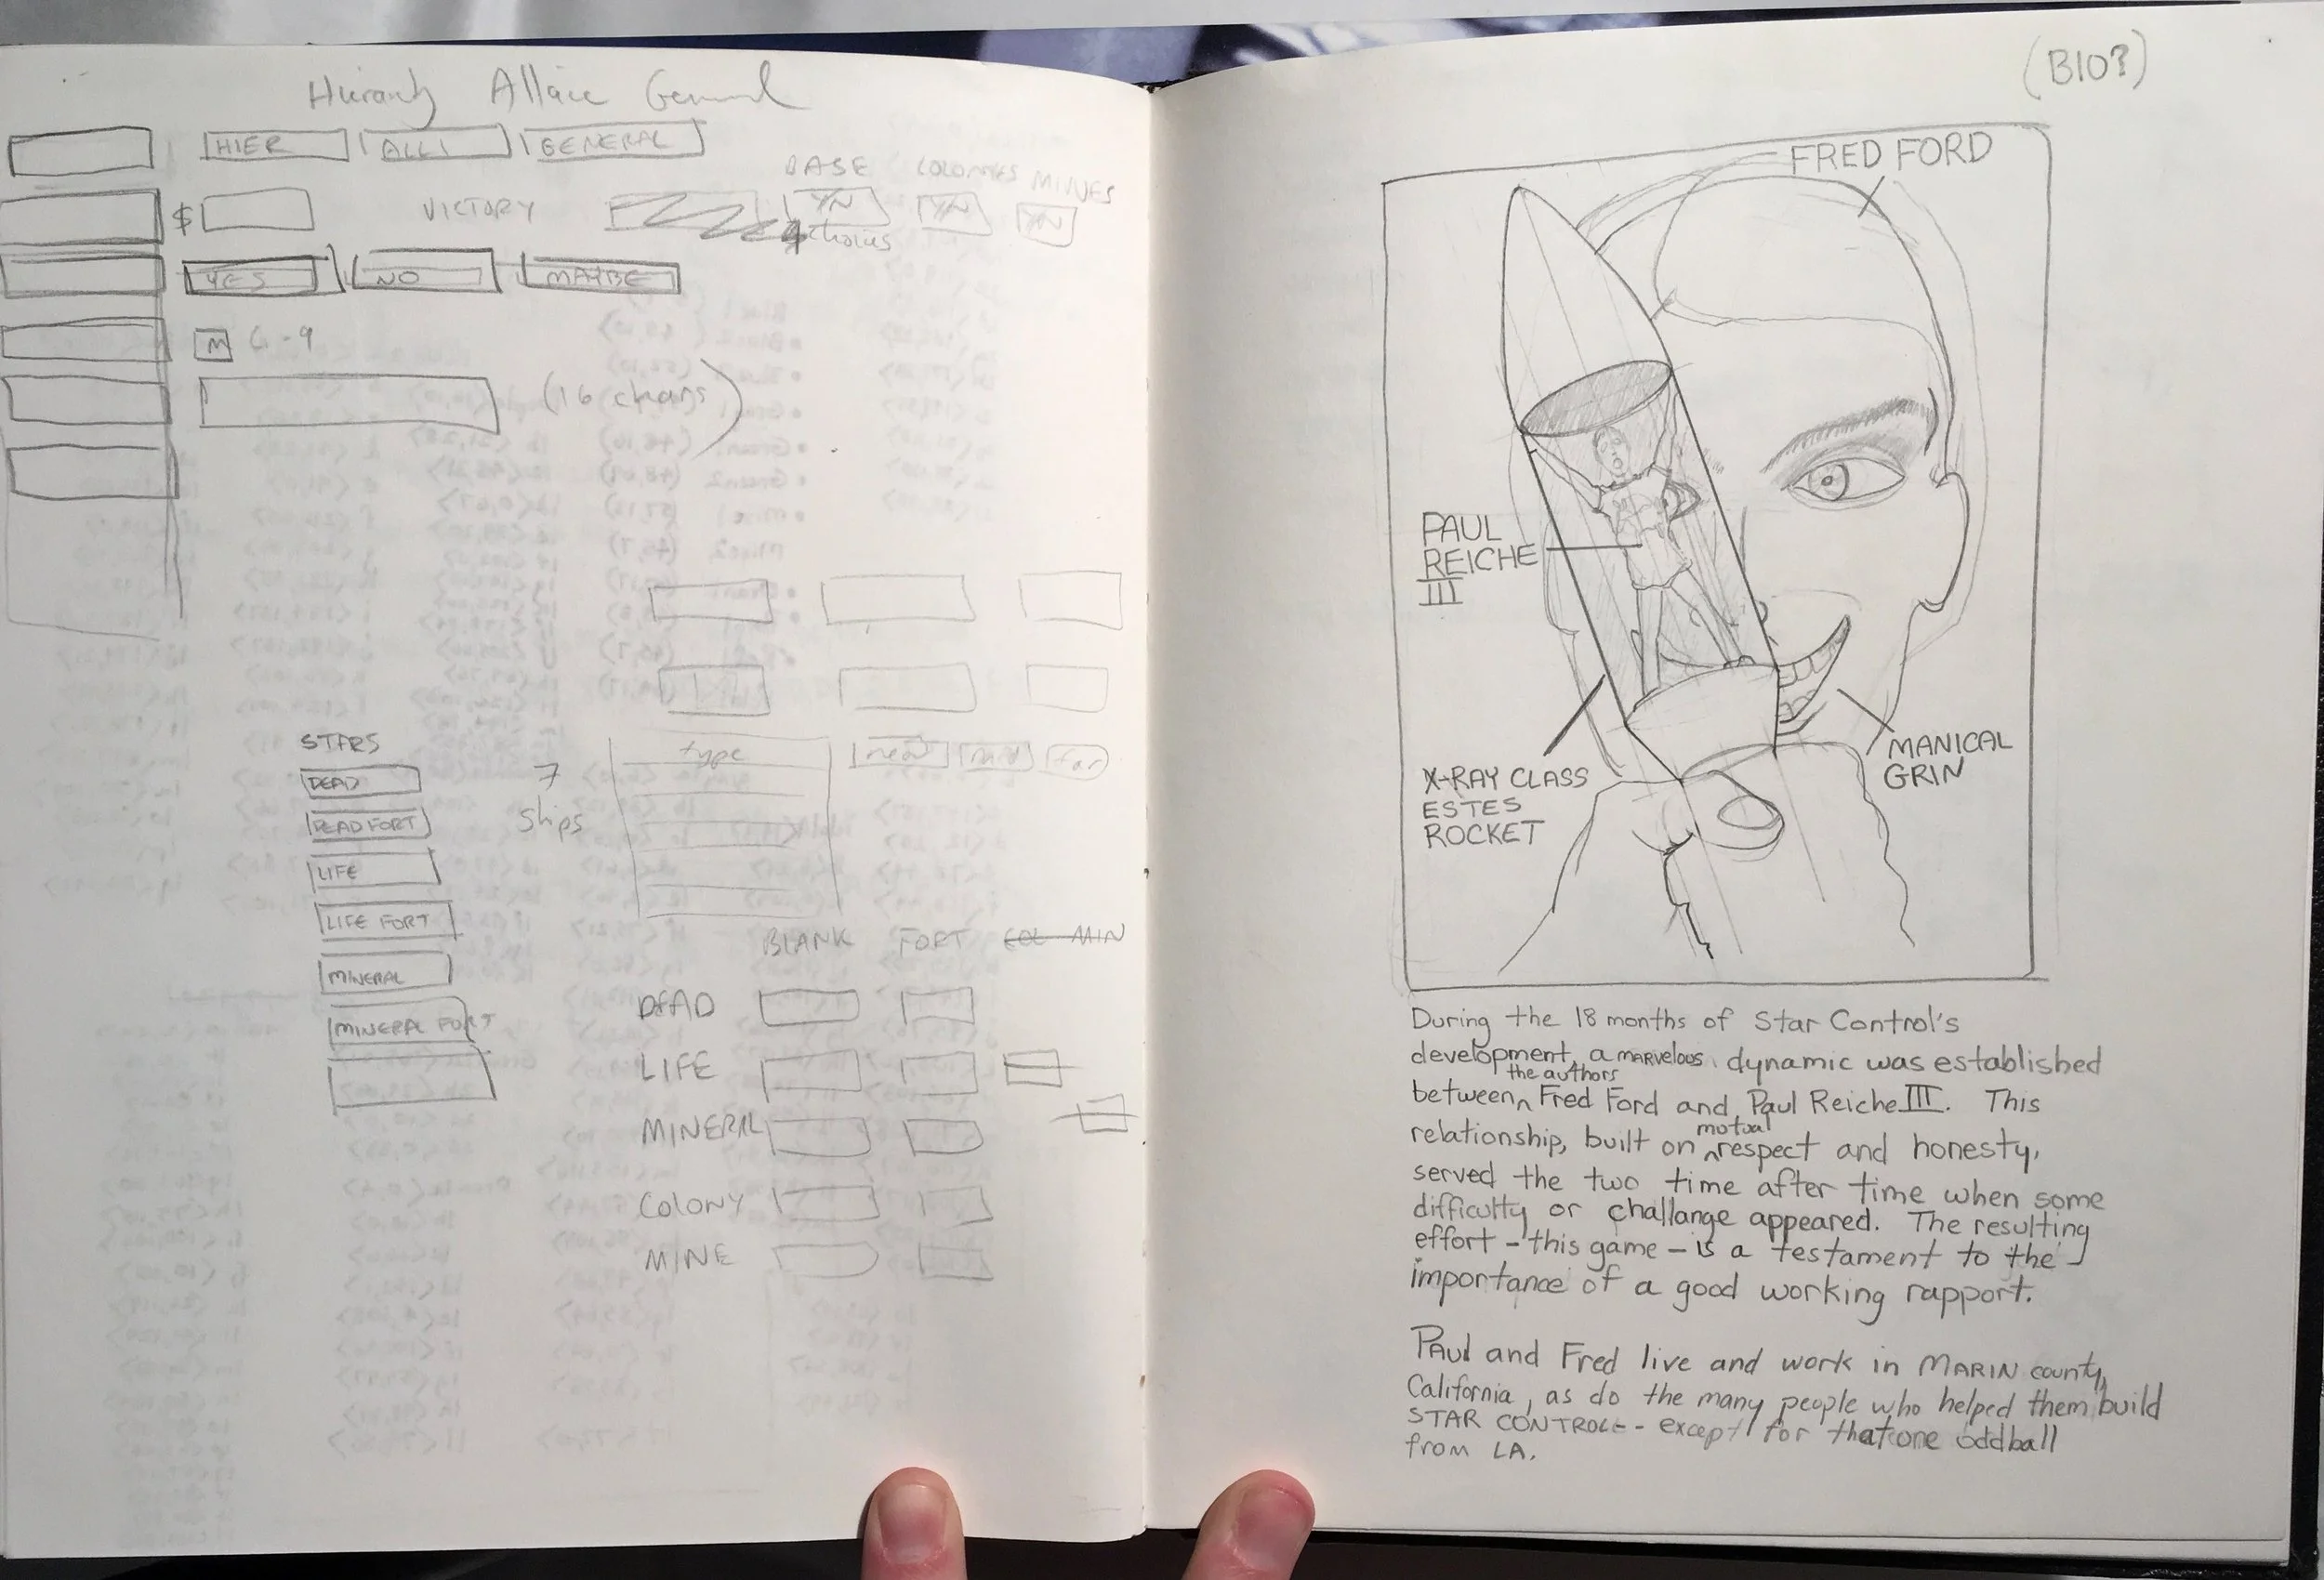 General
HIER ALLI GENERAL
BASE COLONIES MINES
$ VICTORY Y/N Y/N Y/N
4 choices
YES NO MAYBE
M 6-9
(16 chars)
STARS
DEAD
DEAD FORT
LIFE
LIFE FORT
MINERAL
MINERAL FORT
7
ships
type near mid far
BLANK FORT COL MIN
DEAD
LIFE
MINERAL
COLONY
MINE
(BIO?)
FRED FORD
PAUL
REICHE
III
X-RAY CLASS
ESTES
ROCKET
MANICAL
GRIN
During the 18 months of Star Control's
development, a MARVELOUS dynamic was established
the authors
between Fred Ford and Paul Reiche III. This
mutual
relationship, built on respect and honesty,
served the two time after time when some
difficulty or challange appeared. The resulting
effort - this game - is a testament to the
importance of a good working rapport.
Paul and Fred live and work in MARIN county,
California, as do the many people who helped them build
STAR CONTROL -- except for that one oddball
from LA.